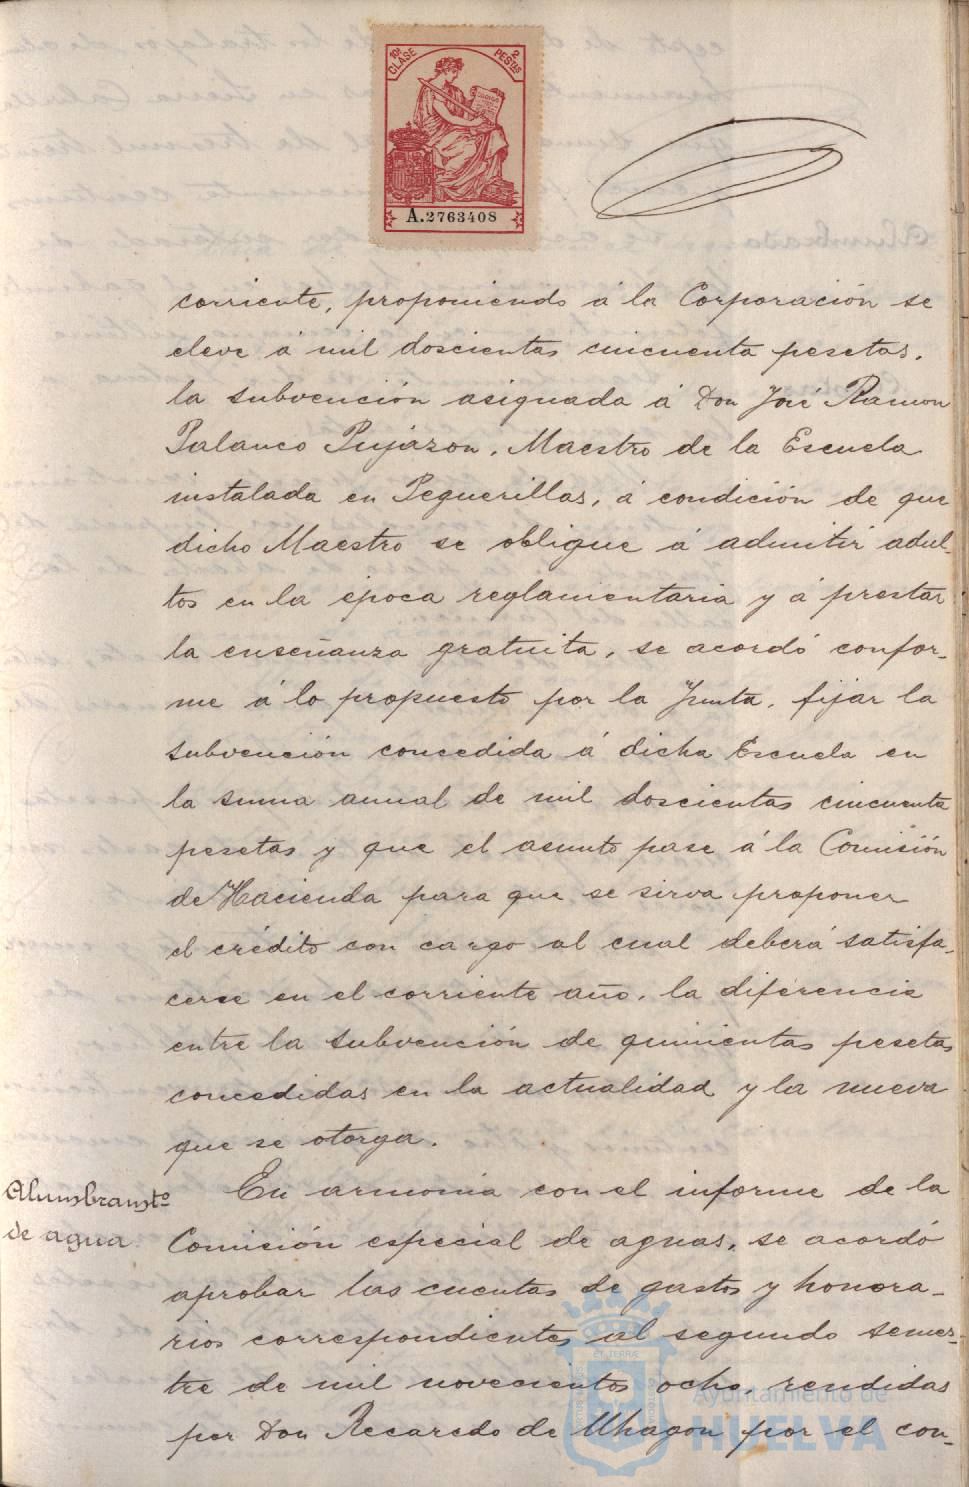 10ª CLASE
2 PESTAS
A.2763408
corriente, proponiendo á la Corporación se
eleve á mil doscientas cincuenta pesetas,
la subvención asignada á Don José Ramon
Palanco Pujazon, Maestro de la Escuela
instalada en Peguerillas, á condición de que
dicho Maestro se obligue á admitir adul-
tos en la época reglamentaria y á prestar
la enseñanza gratuita, se acordó confor-
me á lo propuesto por la Junta, fijar la
subvención concedida á dicha Escuela en
la suma anual de mil doscientas cincuenta
pesetas y que el asunto pase á la Comisión
de Hacienda para que se sirva proponer
el crédito con cargo al cual deberá satisfa-
cerse en el corriente año, la diferencia
entre la subvención de quinientas pesetas
concedidas en la actualidad y la nueva
que se otorga.
Alumbramtº
de agua
En armonia con el informe de la
Comisión especial de aguas, se acordó
aprobar las cuentas de gastos y honora-
rios correspondientes al segundo semes-
tre de mil novecientos ocho, rendidas
por Don Recaredo de Uhagon por el con-
Ayuntamiento de
HUELVA